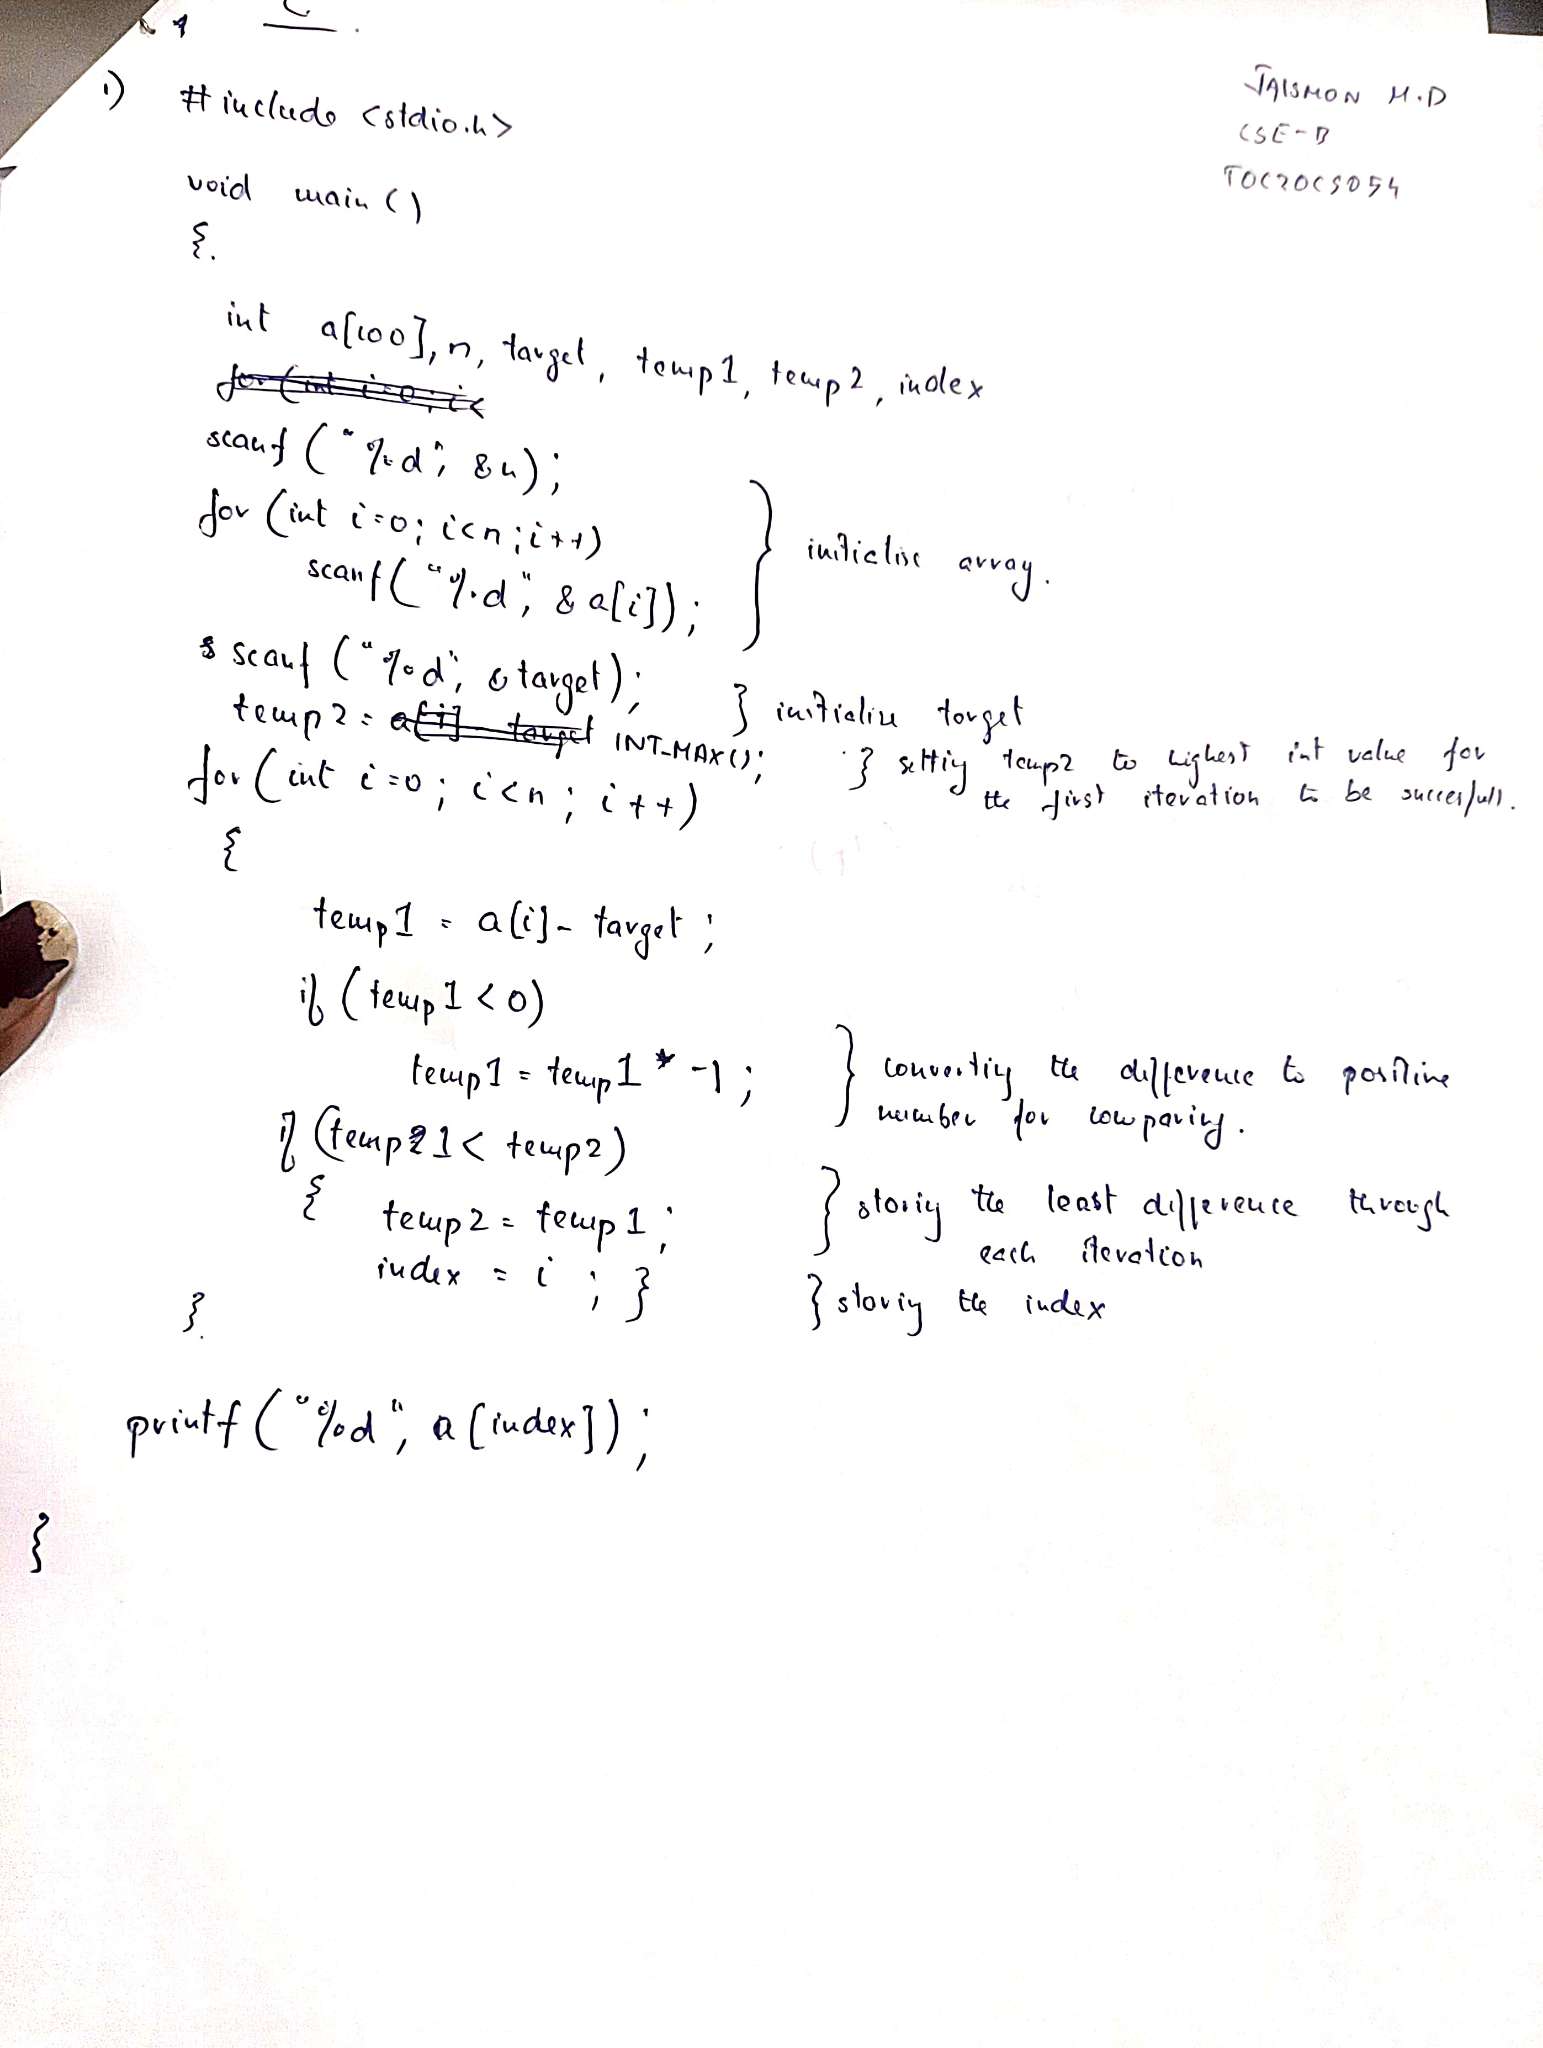 1)
#include <stdio.h>
JAISMON M.D
CSE-B
TOC20CS054
void main ()
{
int a[100], n, target, temp1, temp2, index
for (int i=0; i<
scanf ("%d", &n);
for (int i=0; i<n; i++)
scanf ("%d", &a[i]);
} initialise array.
scanf ("%d", &target);
} initialize target
temp2 = a[i] - target INT_MAX();
} setting temp2 to highest int value for
the first iteration to be succesfull.
for (int i=0; i<n; i++)
{
temp1 = a[i] - target;
if (temp1 <0)
temp1 = temp1 * -1;
} converting the difference to positive
number for comparing.
if (temp1 < temp2)
{ temp2 = temp1;
} storing the least difference through
each iteration
index = i; }
} storing the index
}
printf ("%d", a[index]);
}